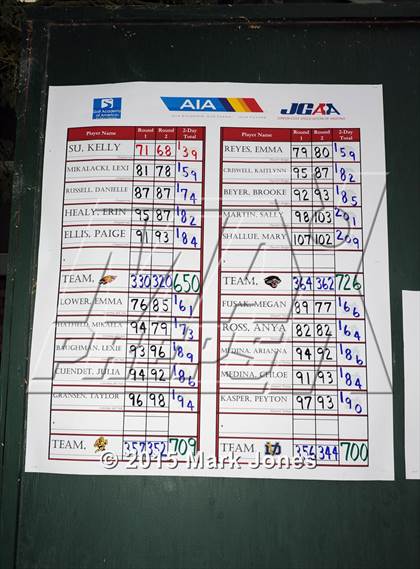 AIA
JGAA
Player Name Round 1 Round 2 2-Day Total
SU, KELLY 71 68 139
MIKALACKI, LEXI 81 78 159
RUSSELL, DANIELLE 87 87 174
HEALY, ERIN 95 87 182
ELLIS, PAIGE 91 93 184
TEAM, 330 320 650
LOWER, EMMA 76 85 161
HATFIELD, MIKAELA 94 79 173
BAUGHMAN, LEXIE 93 96 189
CUENDET, JULIA 94 92 186
GRANSEN, TAYLOR 96 98 194
TEAM, 357 352 709
Player Name Round 1 Round 2 2-Day Total
REYES, EMMA 79 80 159
CRISWELL, KAITLYNN 95 87 182
BEYER, BROOKE 92 93 185
MARTIN, SALLY 98 103 201
SHALLUE, MARY 107 102 209
TEAM, 364 362 726
FUSAK, MEGAN 89 77 166
ROSS, ANYA 82 82 164
MEDINA, ARIANNA 94 92 186
MEDINA, CHLOE 91 93 184
KASPER, PEYTON 97 93 190
TEAM, 356 344 700
© 2015 Mark Jones